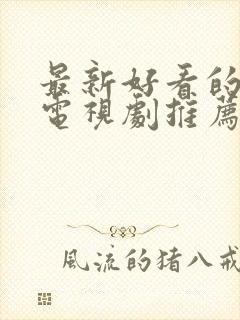 最新好看的
電視劇推薦
風流的猪八戒